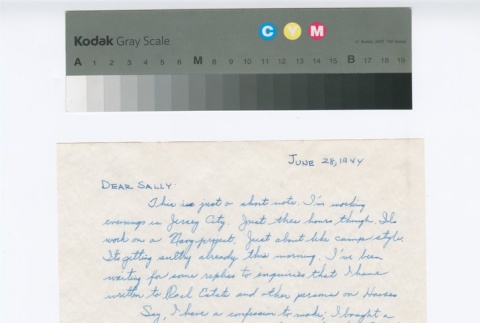 Kodak Gray Scale
C Y M
A 1 2 3 4 5 6 M 8 9 10 11 12 13 14 15 B 17 18 19
June 28, 1944
Dear Sally
This is just a short note. I'm working
evenings in Jersey City. Just three hours, though. Its
work on a Navy project. Just about like camp style.
Its getting sultry already this morning. I've been
waiting for some replies to enquiries that I have
written to Real Estate and other persons on Houses
Say, I have a confession to make; I bought a